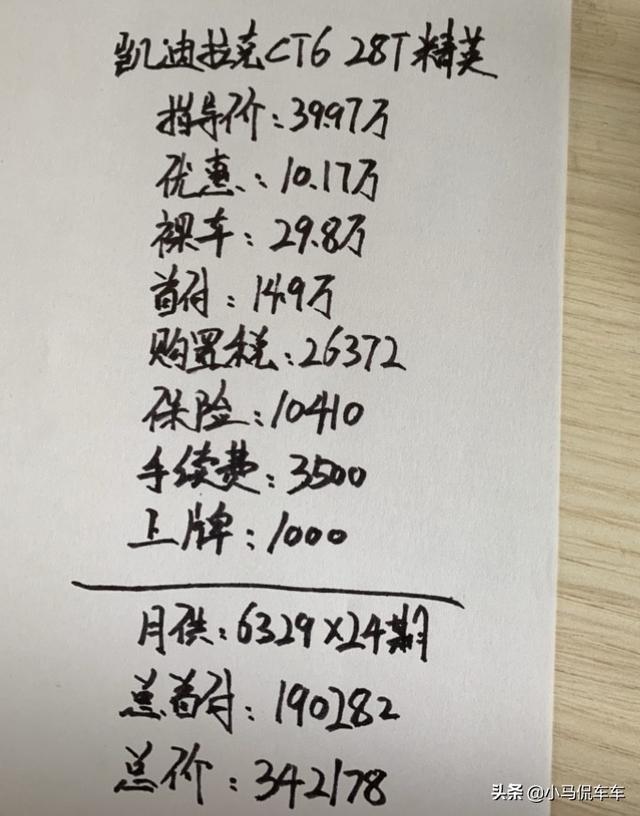 凯迪拉克CT6 28T精英
指导价:39.97万
优惠:10.17万
裸车:29.8万
首付:14.9万
购置税:26372
保险:10410
手续费:3500
上牌:1000
月供:6329×24期
总首付:190282
总价:342178
头条 @小马侃车车